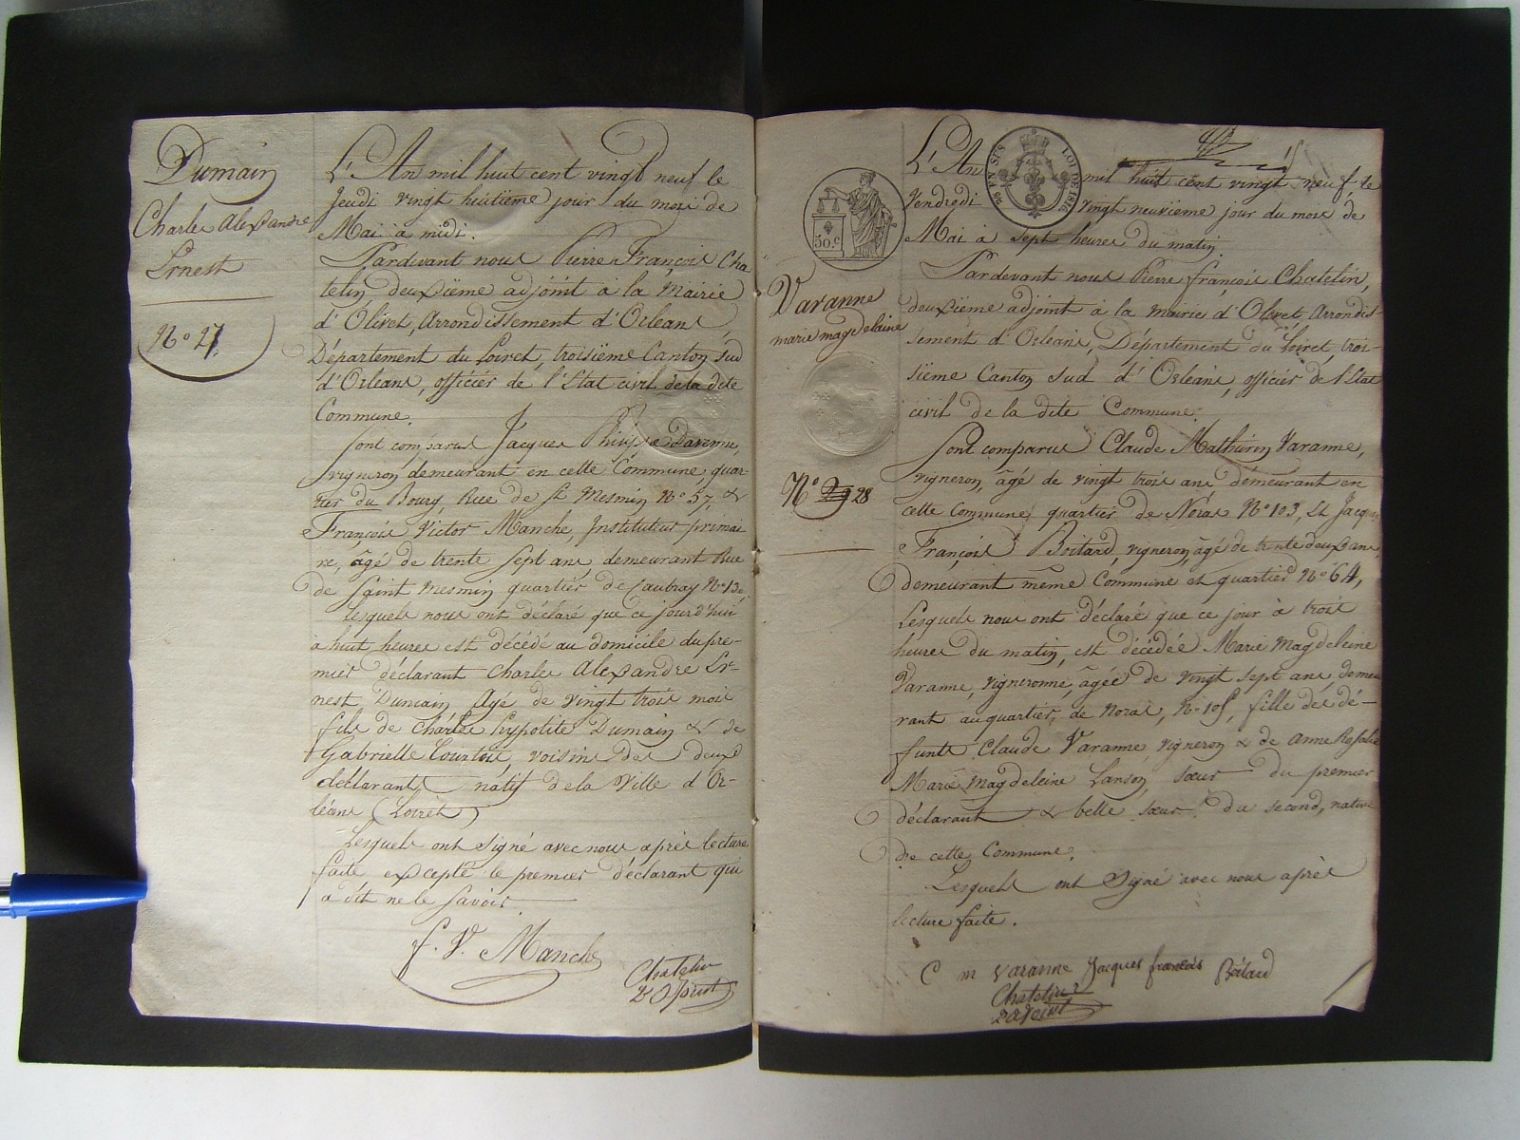 Dumain
Charles Alexandre
Ernest
N.o 27.
L'An mil huit cent vingt neuf le
Jeudi vingt huitième jour du mois de
Mai à midi.
Pardevant nous Pierre François Cha
telin deuxième adjoint à la Mairie
d'Olivet, Arrondissement d'Orleans,
Département du Loiret, troisième Canton sud
d'Orleans, officier de l'Etat civil de la dite
Commune.
Sont comparus Jacques Davenne,
vigneron demeurant en cette Commune, quar-
tier du Bourg, Rue de St Mesmin N.o 57, &
François Victor Manche, Instituteur primai
re, âgé de trente sept ans, demeurant Rue
de Saint Mesmin quartier de Caubray N.o 13
Lesquels nous ont déclaré que ce jourd'hui
à huit heures est décédé au domicile du pre-
mier déclarant Charles Alexandre Er-
nest Dumain Agé de vingt trois mois
fils de Charles hypolite Dumain & de
Gabrielle Courtois, voisins des deux
déclarants, natif de la Ville d'Or-
léans (Loiret)
Lesquels ont Signé avec nous après lecture
faite excepté le premier déclarant qui
a dit ne le Savoir.
f. V. Manche
Chatelin
2e Adjoint
50.c
10 EN SUS LOI DE 1816
Varanne
marie magdelaine
N.o 29 28
L'An mil huit cent vingt-neuf le
Vendredi vingt neuvième jour du mois de
Mai à sept heures du matin
Pardevant nous Pierre françois Chatelin,
deuxième adjoint à la mairie d'Olivet Arrondis-
sement d'Orleans, Département du Loiret, troi-
sième Canton sud d'Orleans, officier de l'Etat
civil de la dite Commune.
Sont comparus Claude Mathurin Varanne,
vigneron, âgé de vingt trois ans demeurant en
cette Commune quartier de Noras N.o 103, Et Jacques
François Boitard, vigneron, âgé de trente deux ans,
demeurant même Commune et quartier N.o 64,
Lesquels nous ont déclaré que ce jour à trois
heures du matin, est décédée Marie Magdeleine
Varanne, vigneronne, âgée de vingt sept ans, demeu
rant au quartier de Noras, N.o 105, fille des dé-
funts Claude Varanne vigneron & de Anne Rosalie
Marie Magdeleine Lanson, sœur du premier
déclarant & belle sœur du second, native
de cette Commune.
Lesquels ont Signé avec nous après
lecture faite.
C m varanne Jacques francois Boitard
Chatelin
2e adjoint